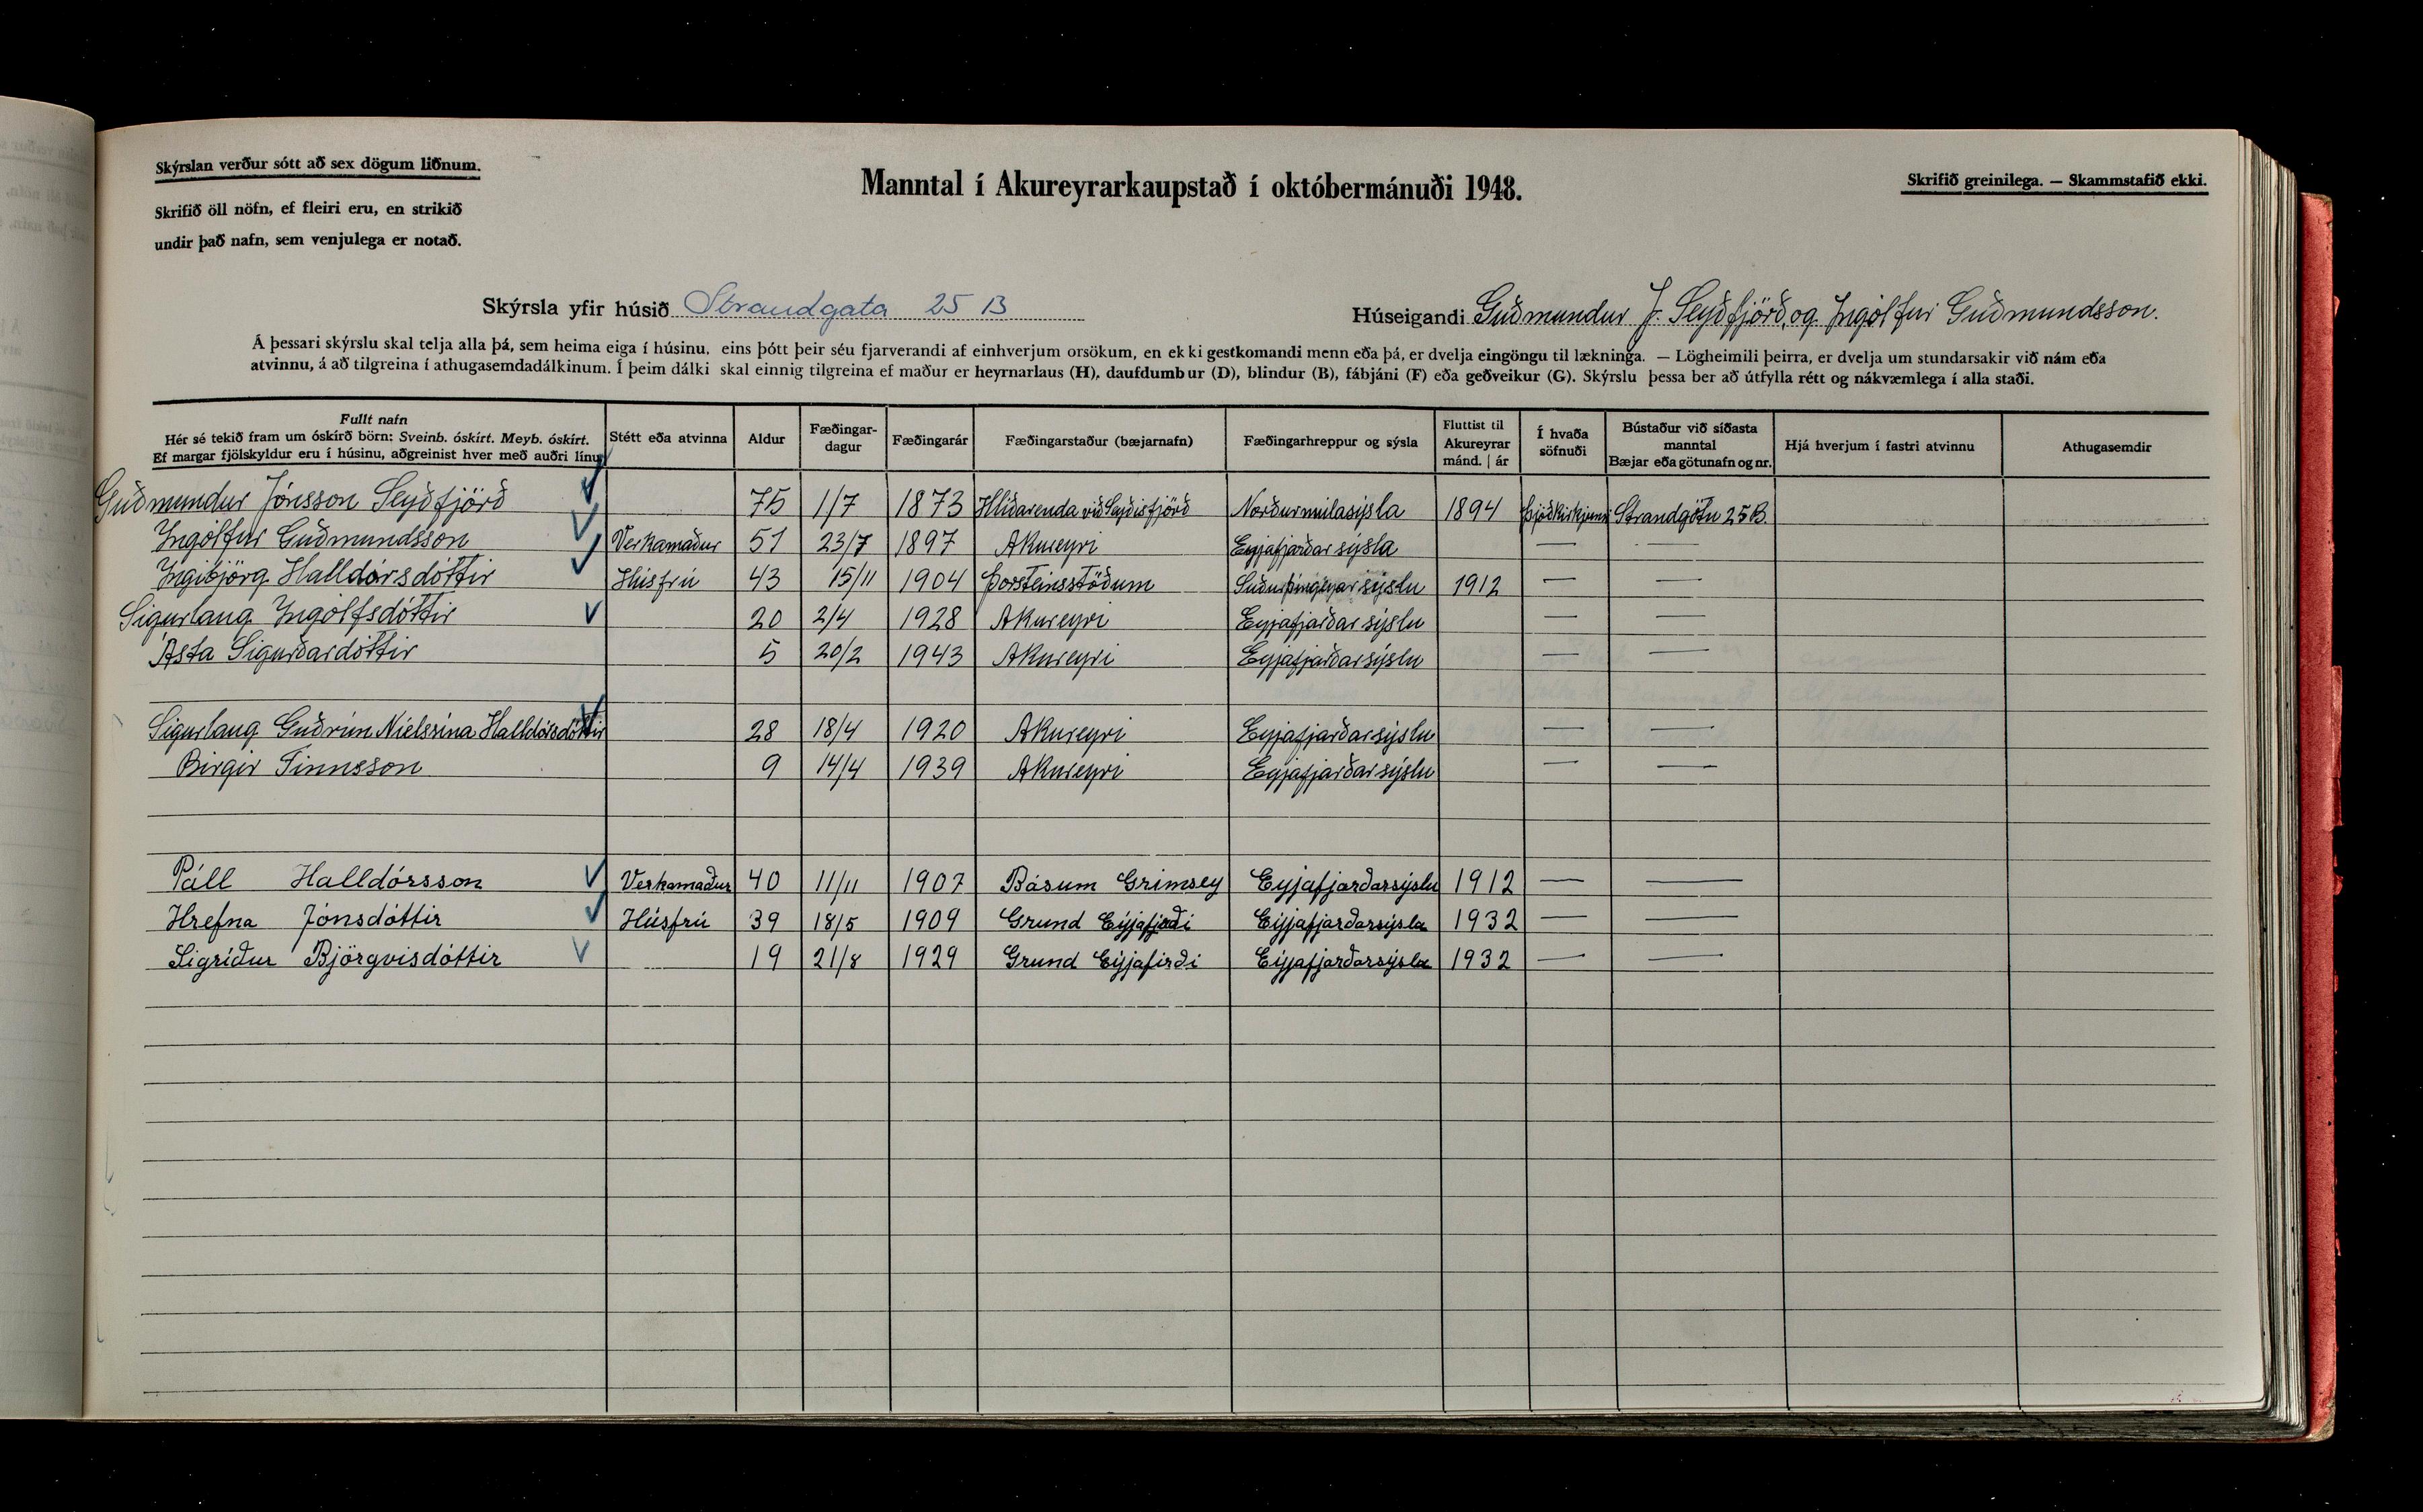 Skýrslan verður sótt að sex dögum liðnum.
Skrifið öll nöfn, ef fleiri eru, en strikið
undir það nafn, sem venjulega er notað.
Manntal í Akureyrarkaupstað í októbermánuði 1948.
Skrifið greinilega. — Skammstafið ekki.
Skýrsla yfir húsið Strandgata 25 B
Húseigandi Guðmundur J. Seyðfjörð, og Ingólfur Guðmundsson.
Á þessari skýrslu skal telja alla þá, sem heima eiga í húsinu, eins þótt þeir séu fjarverandi af einhverjum orsökum, en ekki gestkomandi menn eða þá, er dvelja eingöngu til lækninga. — Lögheimili þeirra, er dvelja um stundarsakir við nám eða
atvinnu, á að tilgreina í athugasemdadálkinum. Í þeim dálki skal einnig tilgreina ef maður er heyrnarlaus (H), daufdumbur (D), blindur (B), fábjáni (F) eða geðveikur (G). Skýrslu þessa ber að útfylla rétt og nákvæmlega í alla staði.
Fullt nafn
Hér sé tekið fram um óskírð börn: Sveinb. óskírt. Meyb. óskírt.
Ef margar fjölskyldur eru í húsinu, aðgreinist hver með auðri línu
Stétt eða atvinna
Aldur
Fæðingar-
dagur
Fæðingarár
Fæðingarstaður (bæjarnafn)
Fæðingarhreppur og sýsla
Fluttist til
Akureyrar
mánd. | ár
Í hvaða
söfnuði
Bústaður við síðasta
manntal
Bæjar eða götunafn og nr.
Hjá hverjum í fastri atvinnu
Athugasemdir
Guðmundur Jónsson Seyðfjörð 75 1/7 1873 Hlíðarenda við Seyðisfjörð Norðurmúlasýsla 1894 Þjóðkirkjunni Strandgötu 25B.
Ingólfur Guðmundsson Verkamaður 51 23/7 1897 Akureyri Eyjafjarðarsýsla — —
Ingibjörg Halldórsdóttir Húsfrú 43 15/11 1904 Þorsteinsstöðum Suðurþingeyarsýslu 1912 — —
Sigurlaug Ingólfsdóttir 20 2/4 1928 Akureyri Eyjafjarðarsýslu — —
Ásta Sigurðardóttir 5 20/2 1943 Akureyri Eyjafjarðarsýslu — —
Sigurlaug Guðrún Níelsína Halldórsdóttir 28 18/4 1920 Akureyri Eyjafjarðarsýslu — —
Birgir Finnsson 9 14/4 1939 Akureyri Eyjafjarðarsýslu — —
Páll Halldórsson Verkamaður 40 11/11 1907 Básum Grímsey Eyjafjarðarsýslu 1912 — —
Hrefna Jónsdóttir Húsfrú 39 18/5 1909 Grund Eyjafjaði Eyjafjarðarsýsla 1932 — —
Sigríður Björgvisdóttir 19 21/8 1929 Grund Eyjafirði Eyjafjarðarsýsla 1932 — —